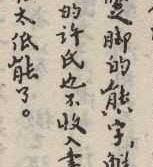 脚的熊字，
的许氏也不收入
太低能了。